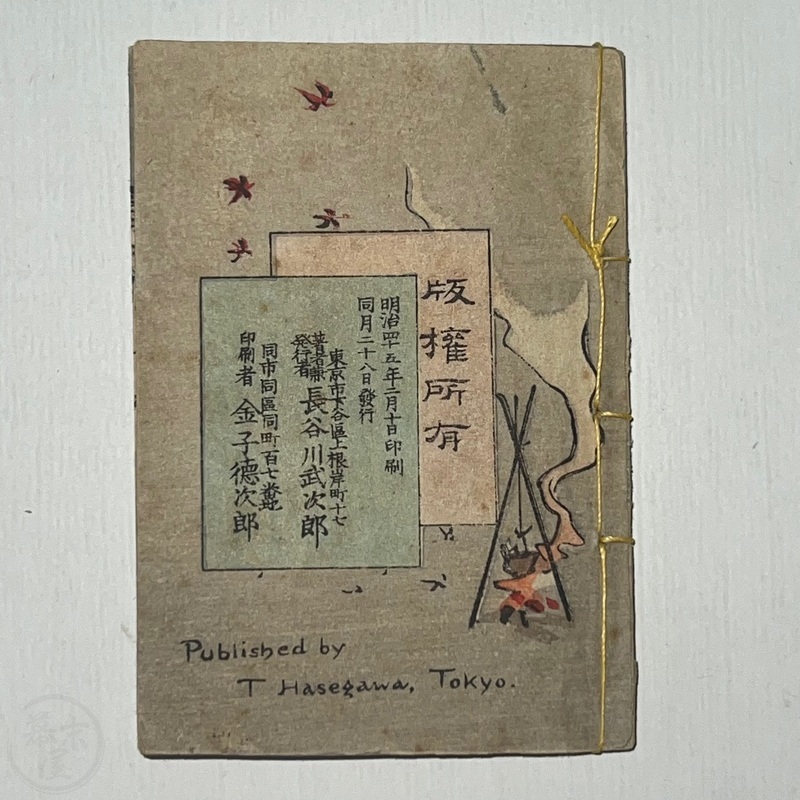 版權所有
明治四十五年二月十日印刷
同月二十八日發行
東京市下谷區上根岸町十七
著者兼
發行者
長谷川武次郎
同市同區同町百七番地
印刷者 金子德次郎
Published by
T Hasegawa, Tokyo.